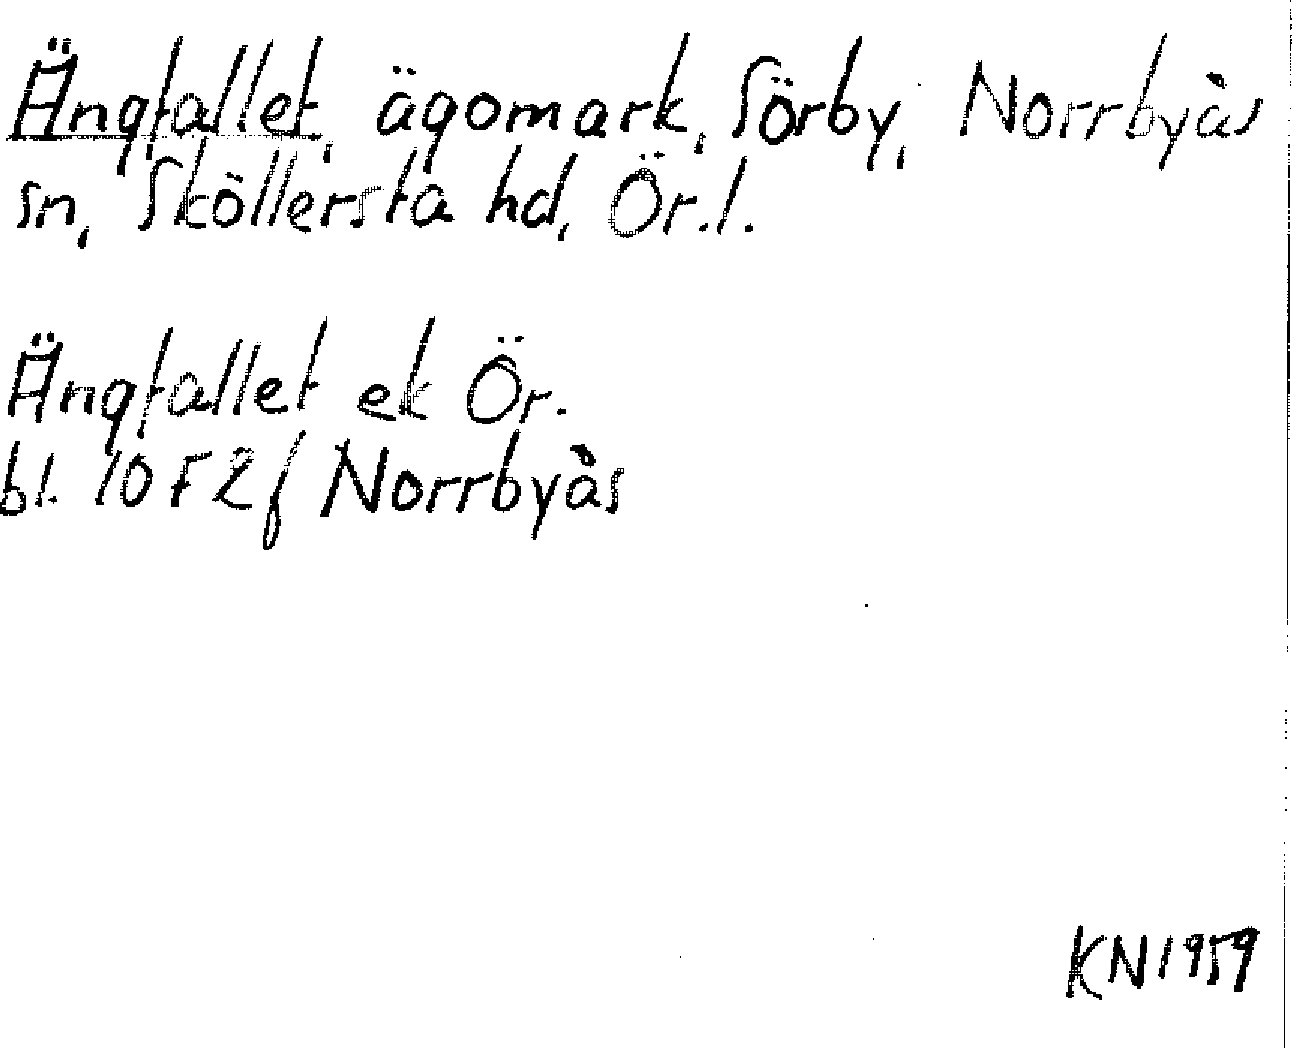 Ängfallet, ägomark, Sörby, Norrbyås
sn, Sköllersta hd, Ör.l.
Ängfallet ek Ör.
bl. 10F2f Norrbyås
KN1959